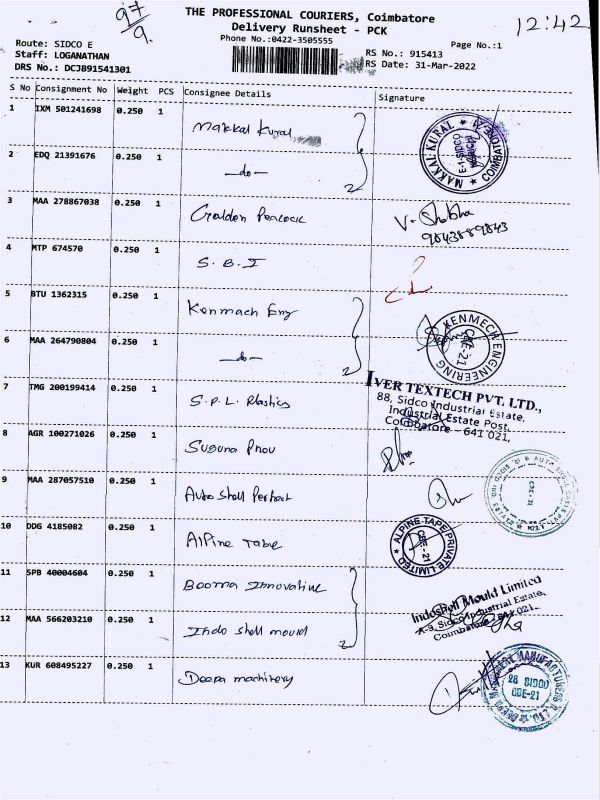 97/9.
THE PROFESSIONAL COURIERS, Coimbatore
12:42
Delivery Runsheet - PCK
Phone No.:0422-3505555
Page No.:1
Route: SIDCO E
Staff: LOGANATHAN
RS No.: 915413
DRS No.: DCJB91541301
RS Date: 31-Mar-2022
S No Consignment No Weight PCS Consignee Details Signature
1 IXM 501241698 0.250 1 Makkal Kural
MAKKAL KURAL ★ COIMBATORE
E-1-SIDCO
2 EDQ 21391676 0.250 1 —do— 2
3 MAA 278867038 0.250 1 Goalden Peacock V. Shobha
9843889843
4 MTP 674570 0.250 1 S.B.I
5 BTU 1362315 0.250 1 Kenmach Eng
KENMECH ENGINEERING
CBE-21
6 MAA 264790804 0.250 1 —do— 2
7 TMG 200199414 0.250 1 S.P.L. Plastics
IVER TEXTECH PVT. LTD.,
88, Sidco Industrial Estate,
Industrial Estate Post,
Coimbatore - 641 021,
8 AGR 100271026 0.250 1 Suguna Pnou
9 MAA 287057510 0.250 1 Auto Shell Perfact
10 DDG 4185082 0.250 1 Alpine Tabe
ALPINE TAPE PRIVATE LIMITED ★
CBE-21
11 SPB 40004604 0.250 1 Booma Innovative
12 MAA 566203210 0.250 1 Indo Shell mould 2
Indoshell Mould Limited
A-9, Sidco Industrial Estate,
Coimbatore - 641 021.
13 KUR 608495227 0.250 1 Deepa machinery
28 SIDCO
CBE-21